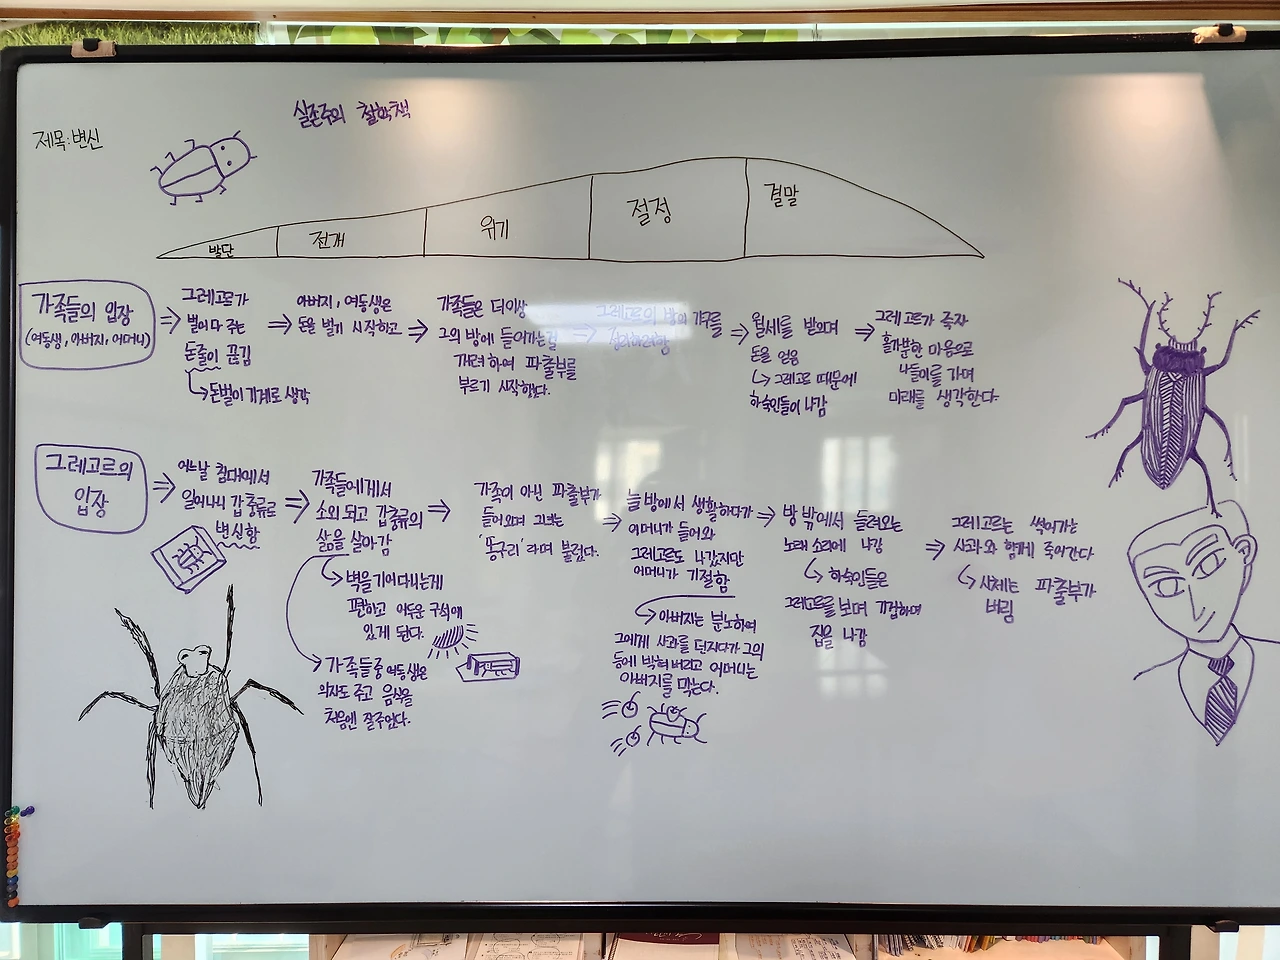 제목:변신
실존주의 철학책
발단
전개
위기
절정
결말
가족들의 입장
(여동생, 아버지, 어머니)
그레고르가
벌어다 주는
돈줄이 끊김
돈벌이 기계로 생각
아버지, 여동생은
돈을 벌기 시작하고
가족들은 더이상
그의 방에 들어가는걸
꺼려하여 파출부를
부르기 시작했다.
그레고르의 방의 가구를
정리하려함
월세를 받으며
돈을 얻음
그레고르 때문에
하숙인들이 나감
그레고르가 죽자
홀가분한 마음으로
나들이를 가며
미래를 생각한다.
그레고르의
입장
어느날 침대에서
일어나니 갑충류로
변신함
가족들에게서
소외 되고 갑충류의
삶을 살아감
벽을 기어다니는게
편하고 어두운 구석에
있게 된다.
가족들중 여동생은
의자도 주고 음식을
처음엔 잘주었다.
가족이 아닌 파출부가
들어오며 그녀는
'똥구리'라며 불렀다.
늘 방에서 생활하다가
어머니가 들어와
그레고르도 나갔지만
어머니가 기절함
아버지는 분노하여
그에게 사과를 던지다가 그의
등에 박혀버리고 어머니는
아버지를 막는다.
방 밖에서 들려오는
노래 소리에 나감
하숙인들은
그레고르를 보며 기겁하며
집을 나감
그레고르는 썩어가는
사과와 함께 죽어간다
시체는 파출부가
버림